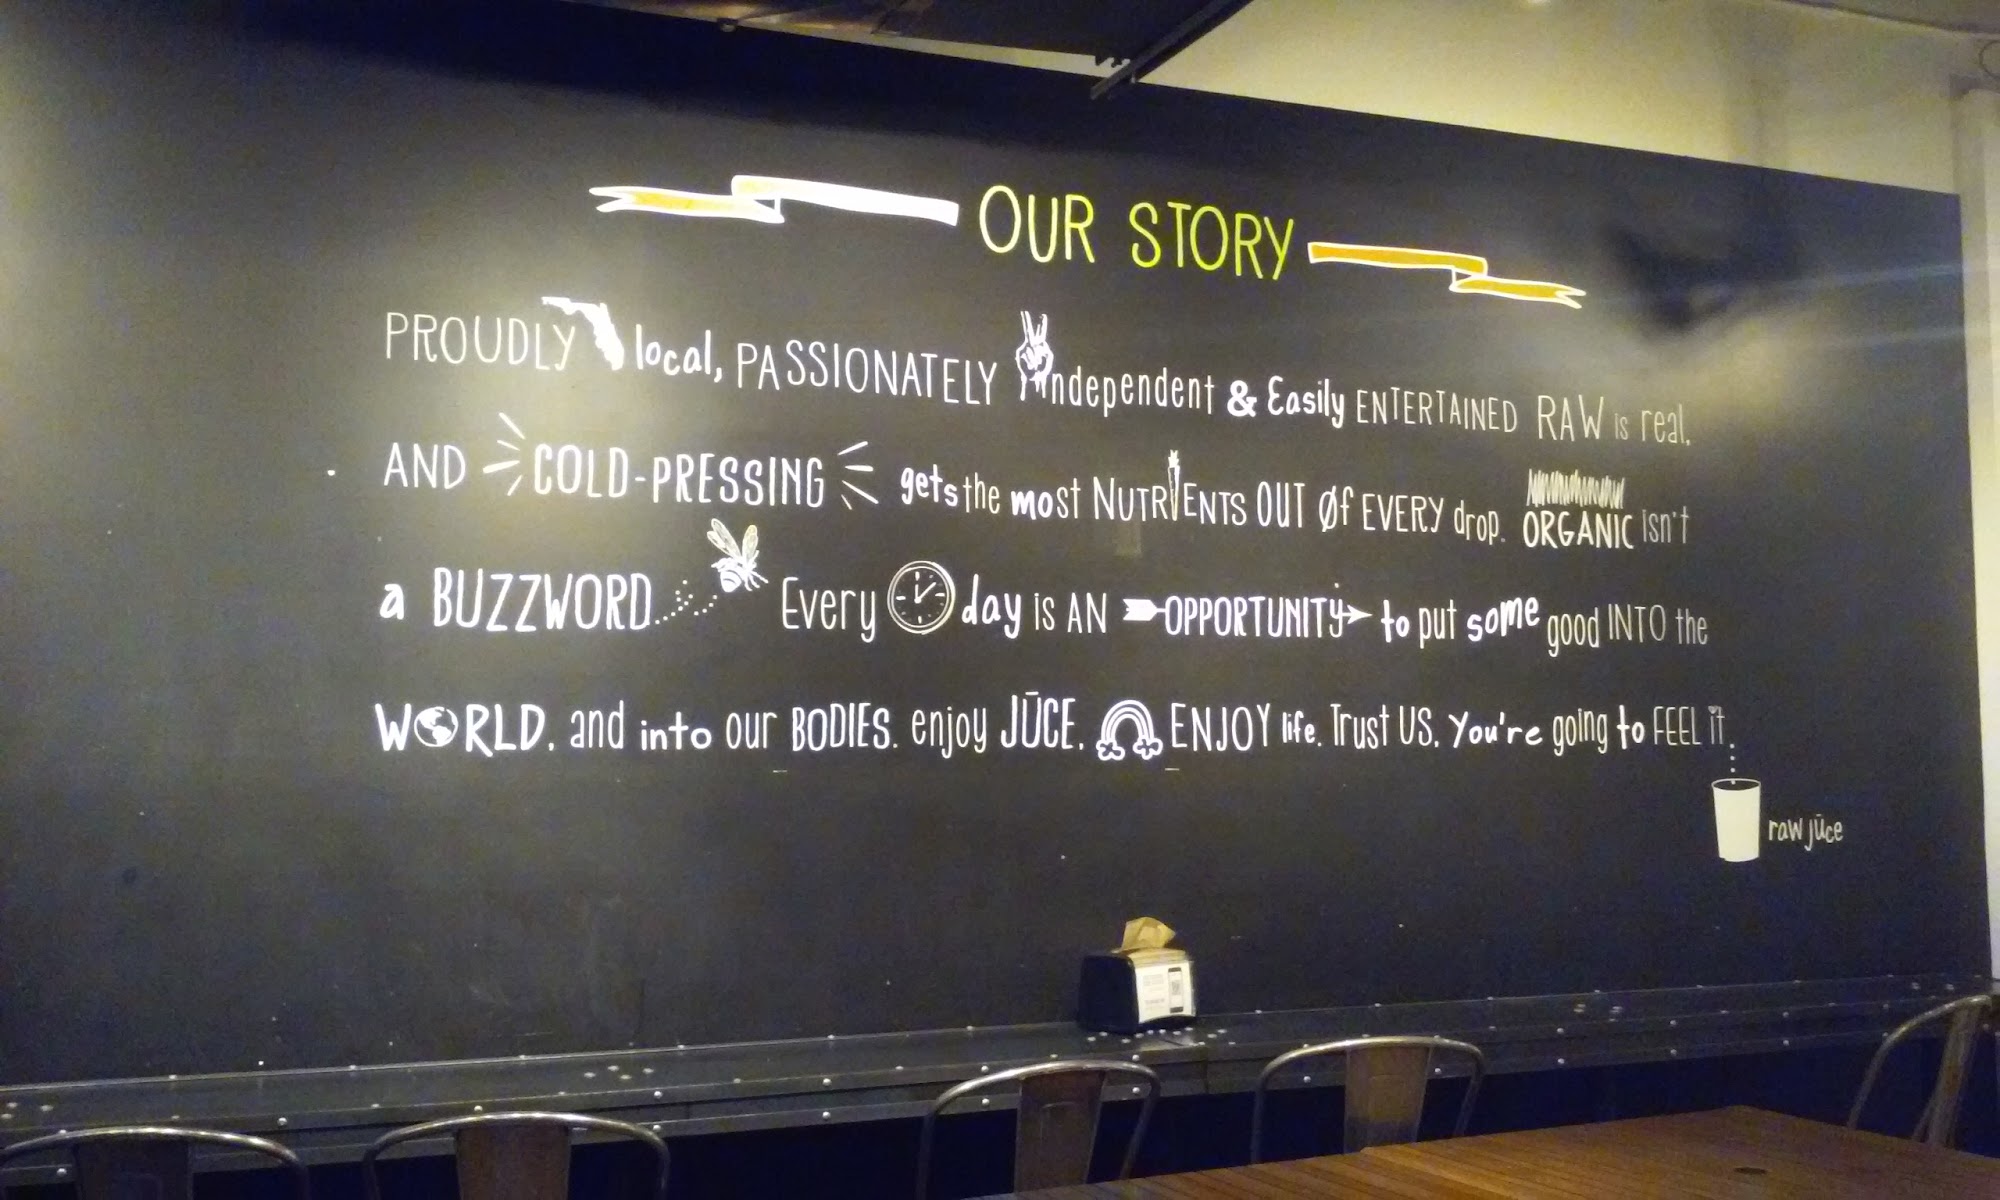 OUR STORY
PROUDLY local, PASSIONATELY independent & Easily ENTERTAINED RAW is real,
AND COLD-PRESSING gets the most NUTRIENTS OUT Of EVERY drop. ORGANIC isn't
a BUZZWORD... Every day is AN OPPORTUNITY to put some good INTO the
WORLD, and into our BODIES. enjoy JŪCE, ENJOY life. Trust US, You're going to FEEL it.
raw jūce